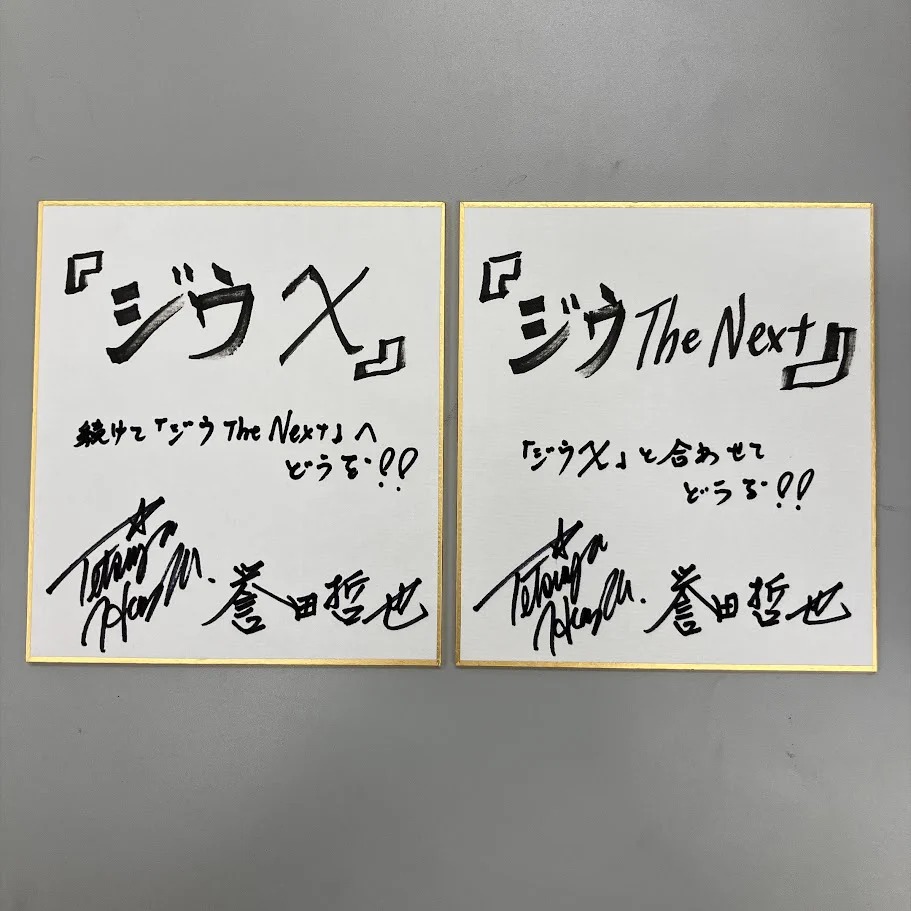 『ジウX』
続けて「ジウ The Next」へ
どうぞ!!
誉田哲也
『ジウThe Next』
「ジウX」と合わせて
どうぞ!!
誉田哲也